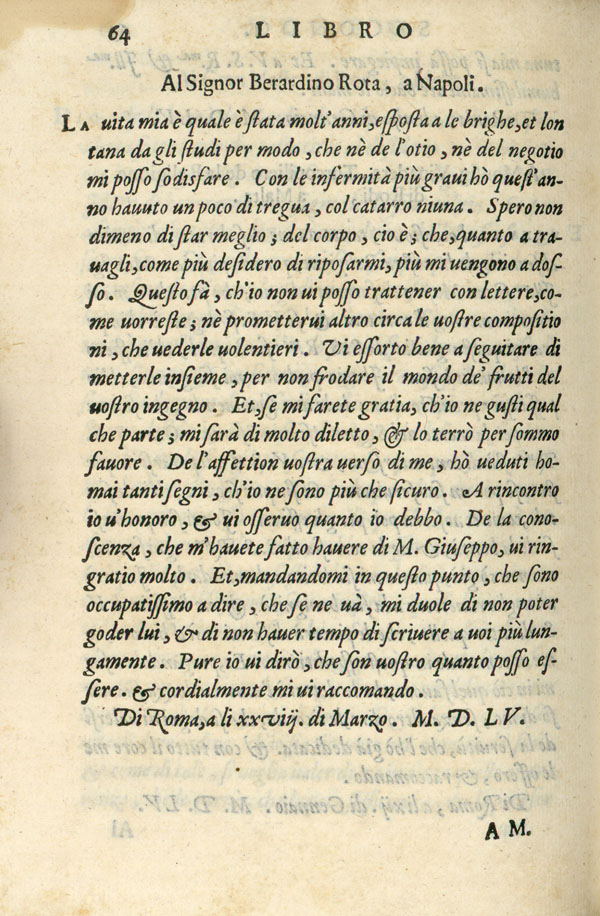 64 LIBRO
Al Signor Berardino Rota, a Napoli.
LA uita mia è quale è ſtata molt'anni, eſpoſta a le brighe, et lon
tana da gli ſtudi per modo, che nè de l'otio, nè del negotio
mi poſſo ſodisfare. Con le infermità più graui hò queſt'an-
no hauuto un poco di tregua, col catarro niuna. Spero non
dimeno di ſtar meglio; del corpo, cio è; che, quanto a tra-
uagli, come più deſidero di ripoſarmi, più mi uengono a doſ-
ſo. Queſto fà, ch'io non ui poſſo trattener con lettere, co-
me uorreſte; nè prometterui altro circa le uoſtre compoſitio
ni, che uederle uolentieri. Vi eſſorto bene a ſeguitare di
metterle inſieme, per non frodare il mondo de' frutti del
uoſtro ingegno. Et, ſe mi farete gratia, ch'io ne guſti qual
che parte; mi ſarà di molto diletto, & lo terrò per ſommo
fauore. De l'affettion uoſtra uerſo di me, hò ueduti ho-
mai tanti ſegni, ch'io ne ſono più che ſicuro. A rincontro
io u'honoro, & ui oſſeruo quanto io debbo. De la cono-
ſcenza, che m'hauete fatto hauere di M. Giuſeppo, ui rin-
gratio molto. Et, mandandomi in queſto punto, che ſono
occupatiſſimo a dire, che ſe ne uà, mi duole di non poter
goder lui, & di non hauer tempo di ſcriuere a uoi più lun-
gamente. Pure io ui dirò, che ſon uoſtro quanto poſſo eſ-
ſere. & cordialmente mi ui raccomando.
Di Roma, a li xxviij. di Marzo. M. D. LV.
A M.